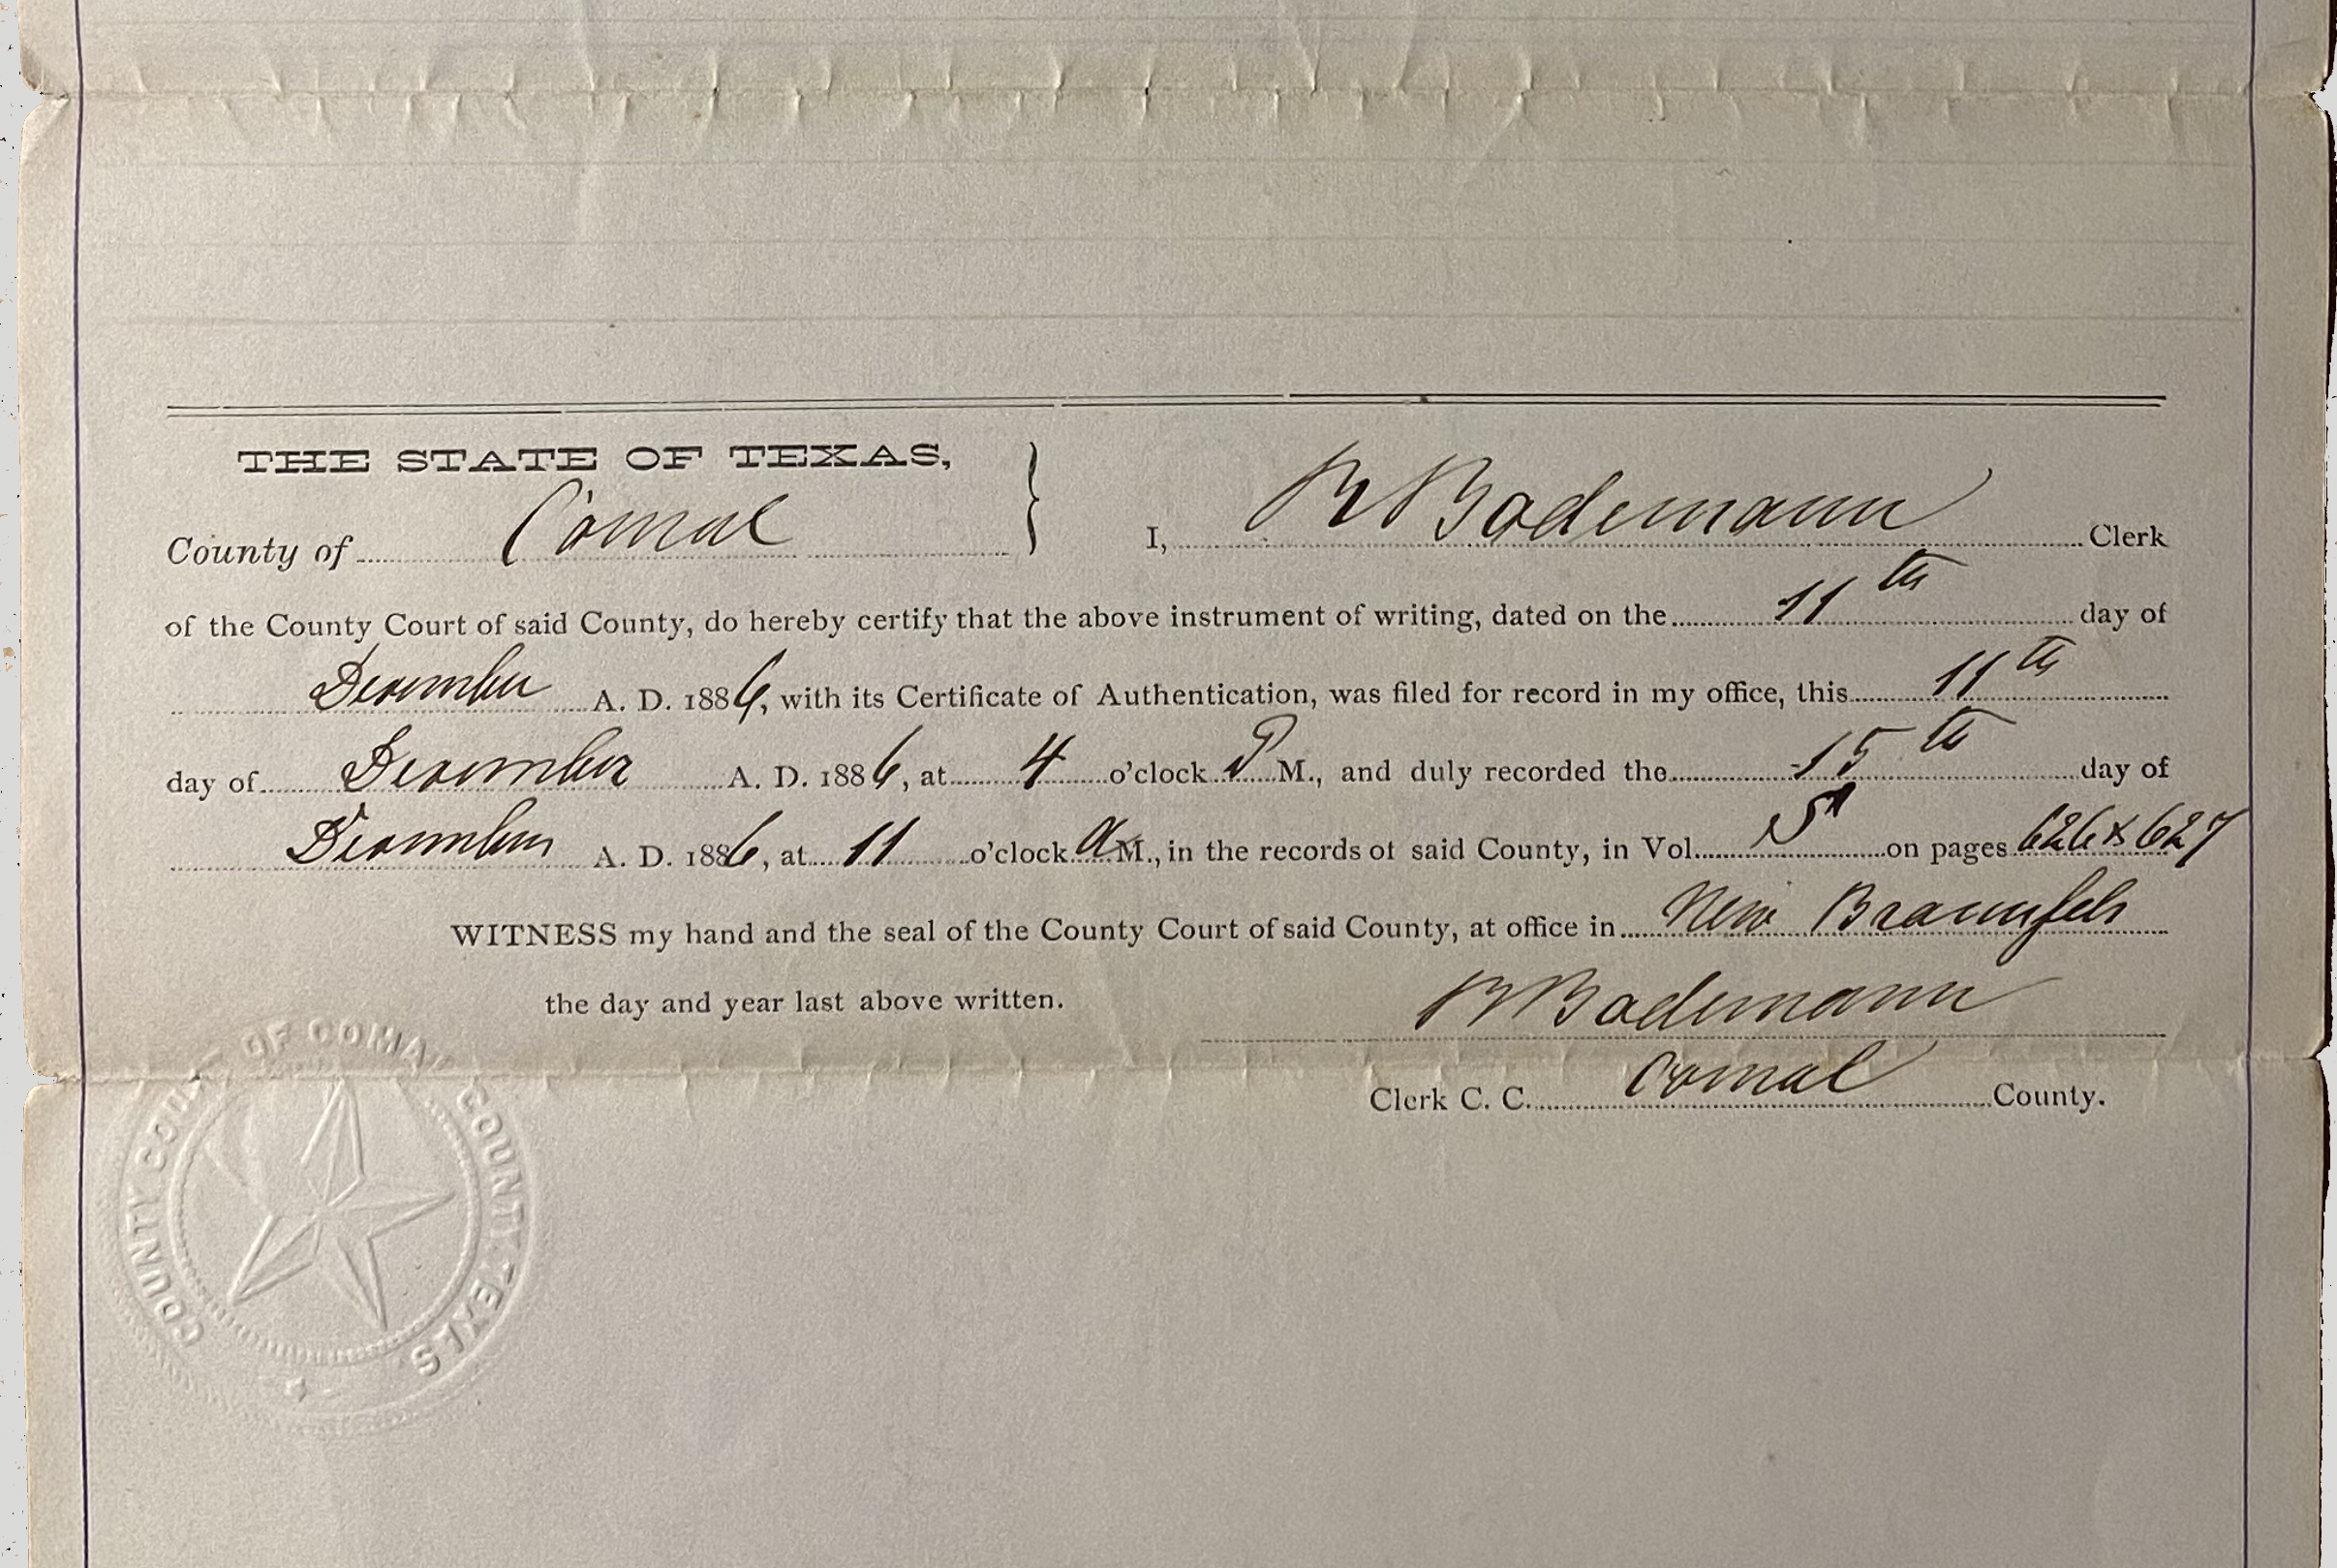 THE STATE OF TEXAS,
County of Comal } I, R Bodemann Clerk
of the County Court of said County, do hereby certify that the above instrument of writing, dated on the 11th day of
December A. D. 1886, with its Certificate of Authentication, was filed for record in my office, this 11th
day of December A. D. 1886, at 4 o'clock P M., and duly recorded the 15th day of
December A. D. 1886, at 11 o'clock A M., in the records of said County, in Vol. on pages 626 & 627
WITNESS my hand and the seal of the County Court of said County, at office in New Braunfels
the day and year last above written. R Bodemann
Clerk C. C. Comal County.
COUNTY COURT OF COMAL COUNTY TEXAS